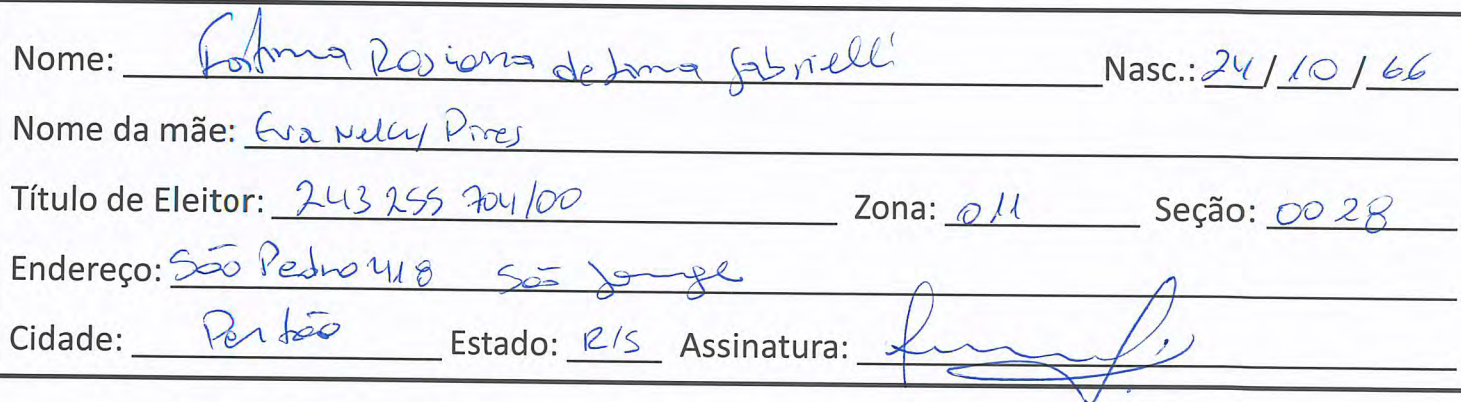 Nome: Fátima Rosiana de Lima Gabrielli Nasc.: 24/10/66
Nome da mãe: Eva Nelcy Pires
Título de Eleitor: 243 255 704/00 Zona: 011 Seção: 0028
Endereço: São Pedro 418 São Jorge
Cidade: Portão Estado: R/S Assinatura: